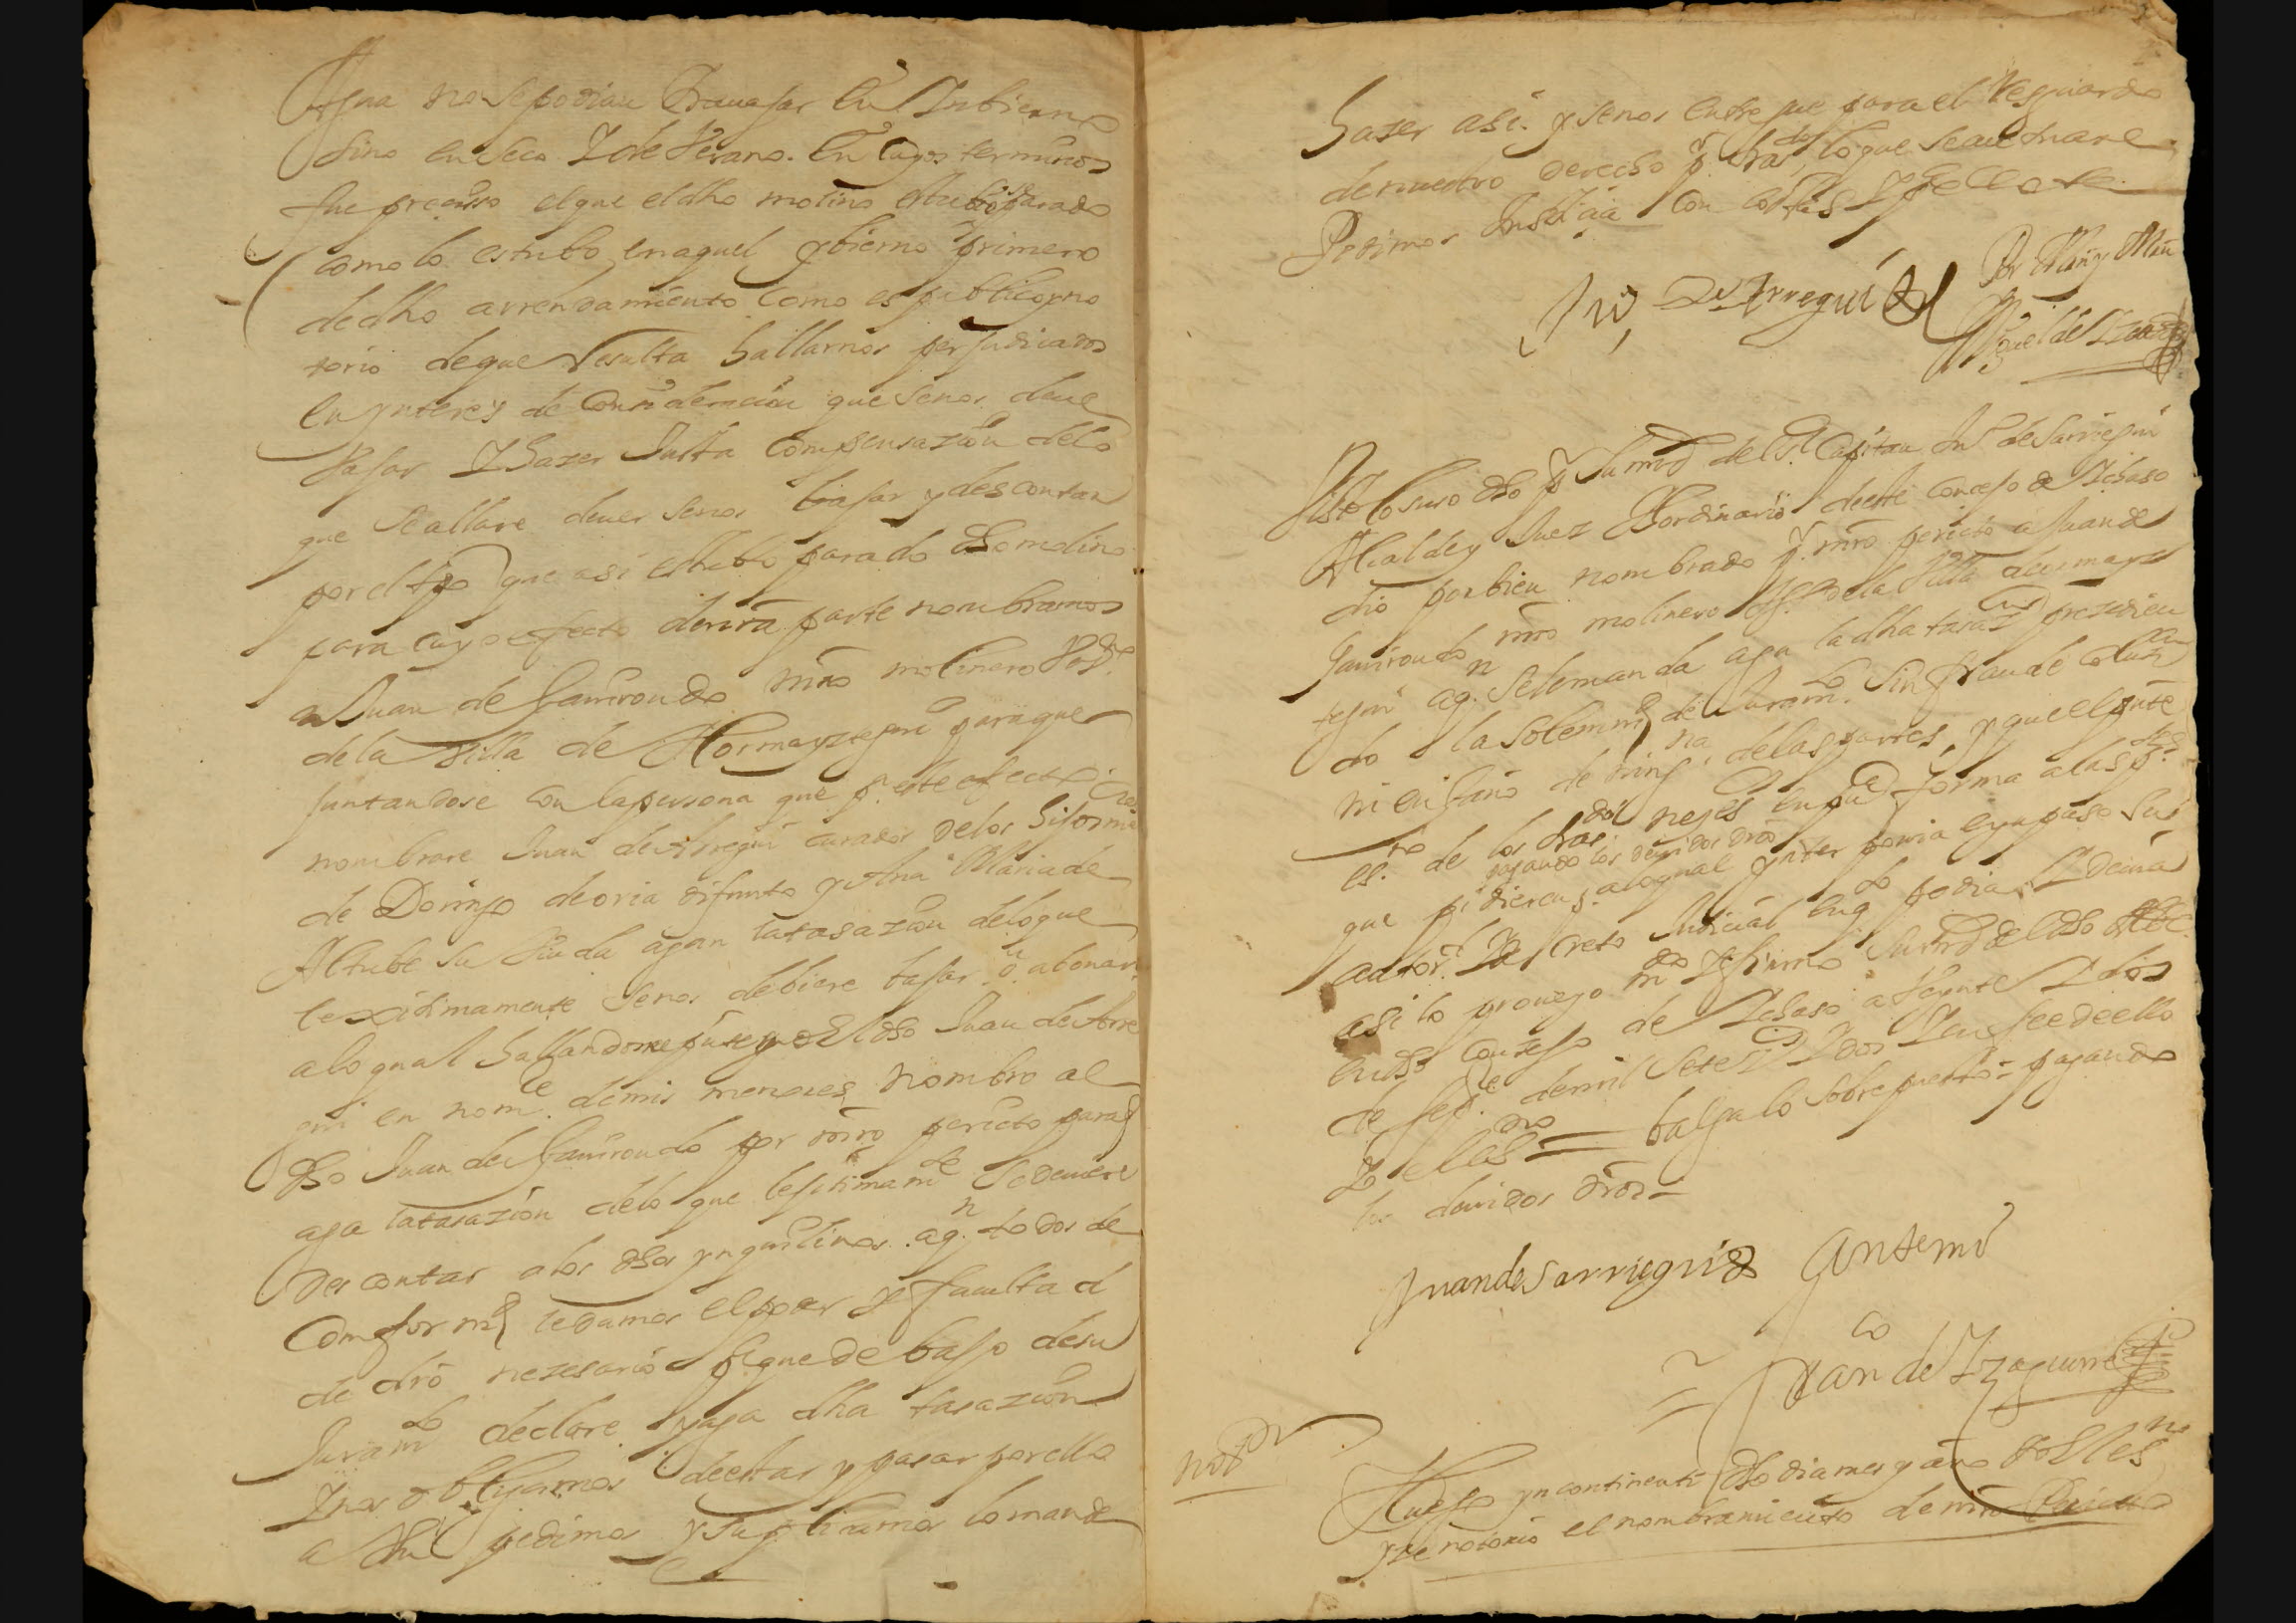 Agua no se podian trauajar en Inbierno
sino en seco Y de Verano. En cuyos terminos
fue precisso el que el dho molino estubiese parado
como lo estubo en aquel ybierno primero
de dho arrendamiento como es publico y no
torio de que Resulta hallarnos perjudicados
en ynteres de Considerazion que se nos deue
bajar Y hazer Justa Compensazion delo
que se allare deuer senos bajar y descontar
por el tpo que asi estubo parado dho molino
para cuyo efecto de nra parte nombramos
a Juan de Gauirondo mro molinero Vezº
de la Villa de Hormayztegui para que
juntandose con la persona que pª este efecto
nombrare Juan de Arregui curador delos hijos me
de Domingo de oria difunto y Ana Maria de
Altube su Viuda agan la tasazion delo que
lexitimamente senos debiere bajar o abonar
alo qual hallandome pnte yo El dho Juan de Arre
gui en nomе de mis menores nombro al
dho Juan de Gauirondo por mro perito para q
aga la tasazion delo que lexitimamte se deuiere
Descontar a los dhos ynquilinos. aqn todos de
Conformd le damos el poder y facultad
de dro nezesario pª que debajo de su
Juramto declare y aga dha tasazion
Y nos obligamos de estar y pasar por ella
a Vm pedimos y suplicamos lo mande
hazer asi. y senos entregue para el Resguardo
de nuestro derecho pr trasdo lo que se auctuare
Pedimos Justicia con costas Y pª ello etª
Juº de Arregui
Por Mariᶻ Altu
Miguel de Yzaª
Visto lo suso dho pr su md del Sr Capitan Juº de Sarriegui
Alcalde y Juez Hordinario deeste Concejo de Ychaso
dio por bien nombrado pr mro perito a Juan de
Gauirondo mro molinero Vezº de la Villa de ormayz
tegui aqn se le manda aga la dha tasazon prezedien
do la solemnid de Juramto. Sin fraude colusion
ni engaño de ningna delas partes, y que el pnte
esno de los trasdos nezes en pucᵃ forma alas ptes
pagando los deuidos dros
que pidieren, alo qual ynterponia e ynpuso su
autord Y decreto Judicial en qto podia Y deuia
asi lo proueyo mdo Y firmo su md del dho Alde
en dho Conzejo de Ychaso a Veynte Y dos
de sepe de mil Setezos Y dos Y en fee de ello
Yo el esno = balga lo sobre puesto = pagando
los deuidos dros =
Juan de Sarriegui Ante mi
Franco de Yzaguirre
noton
Luego yncontinenti dho dia mes y año Yo el esno
yze notorio el nombramiento de mro Perito